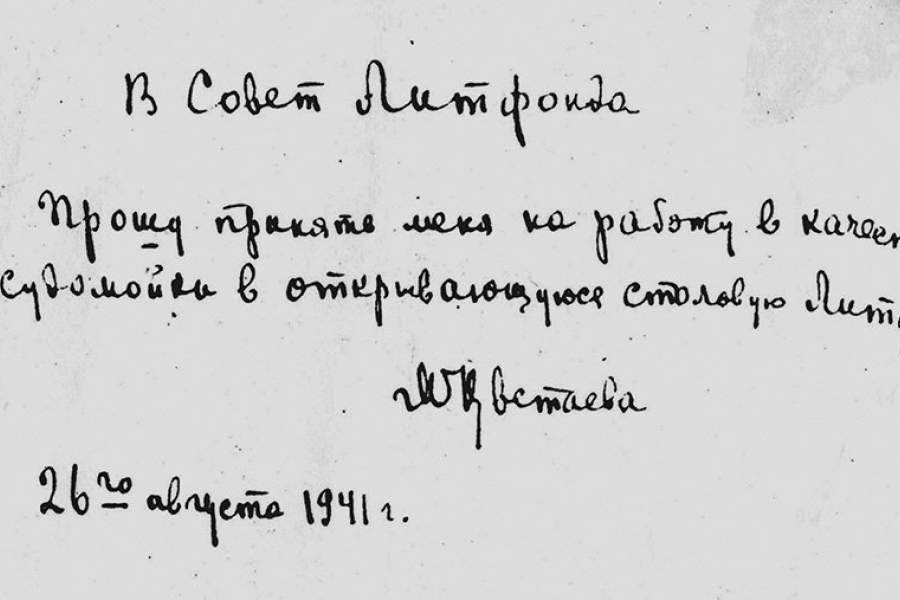 В Совет Литфонда
Прошу принять меня на работу в качест
судомойки в открывающуюся столовую Литф
МЦветаева
26го августа 1941 г.